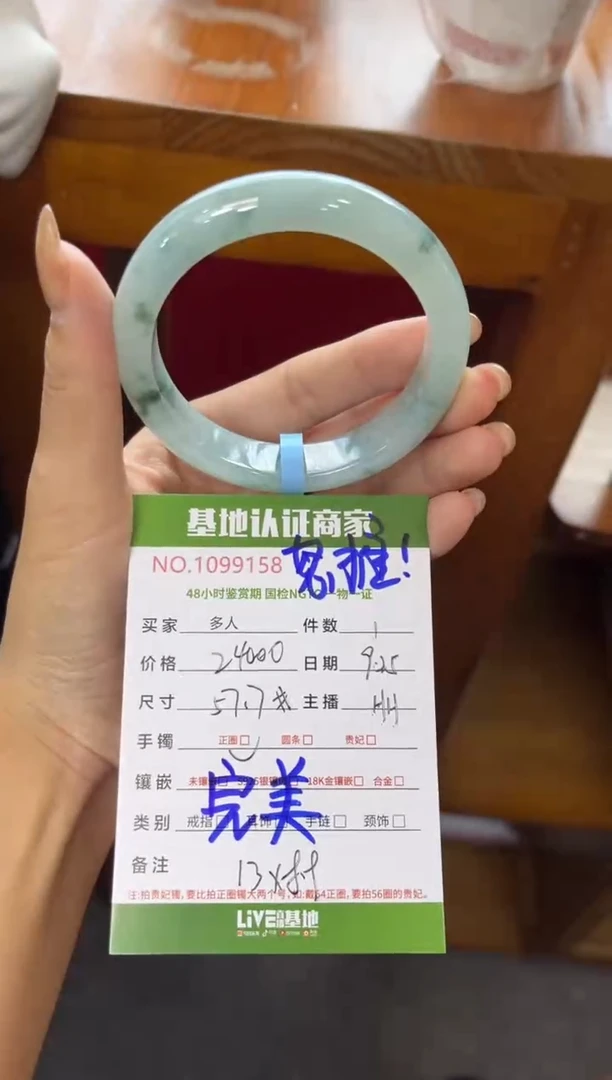 基地认证商家
NO.1099158
48小时鉴赏期 国检NGTC一物一证
买家 多人 件数 1
价格 24000 日期 9.25
尺寸 57.7 主播 HH
手镯 正圈□ 圆条□ 贵妃□
镶嵌 18K金镶嵌□ 合金□
完美
类别 戒指 耳饰 手链□ 颈饰□
备注 13×
注:拍贵妃镯,要比拍正圈镯大两个号,如:戴54正圈,要拍56圈的贵妃。
LIVE基地